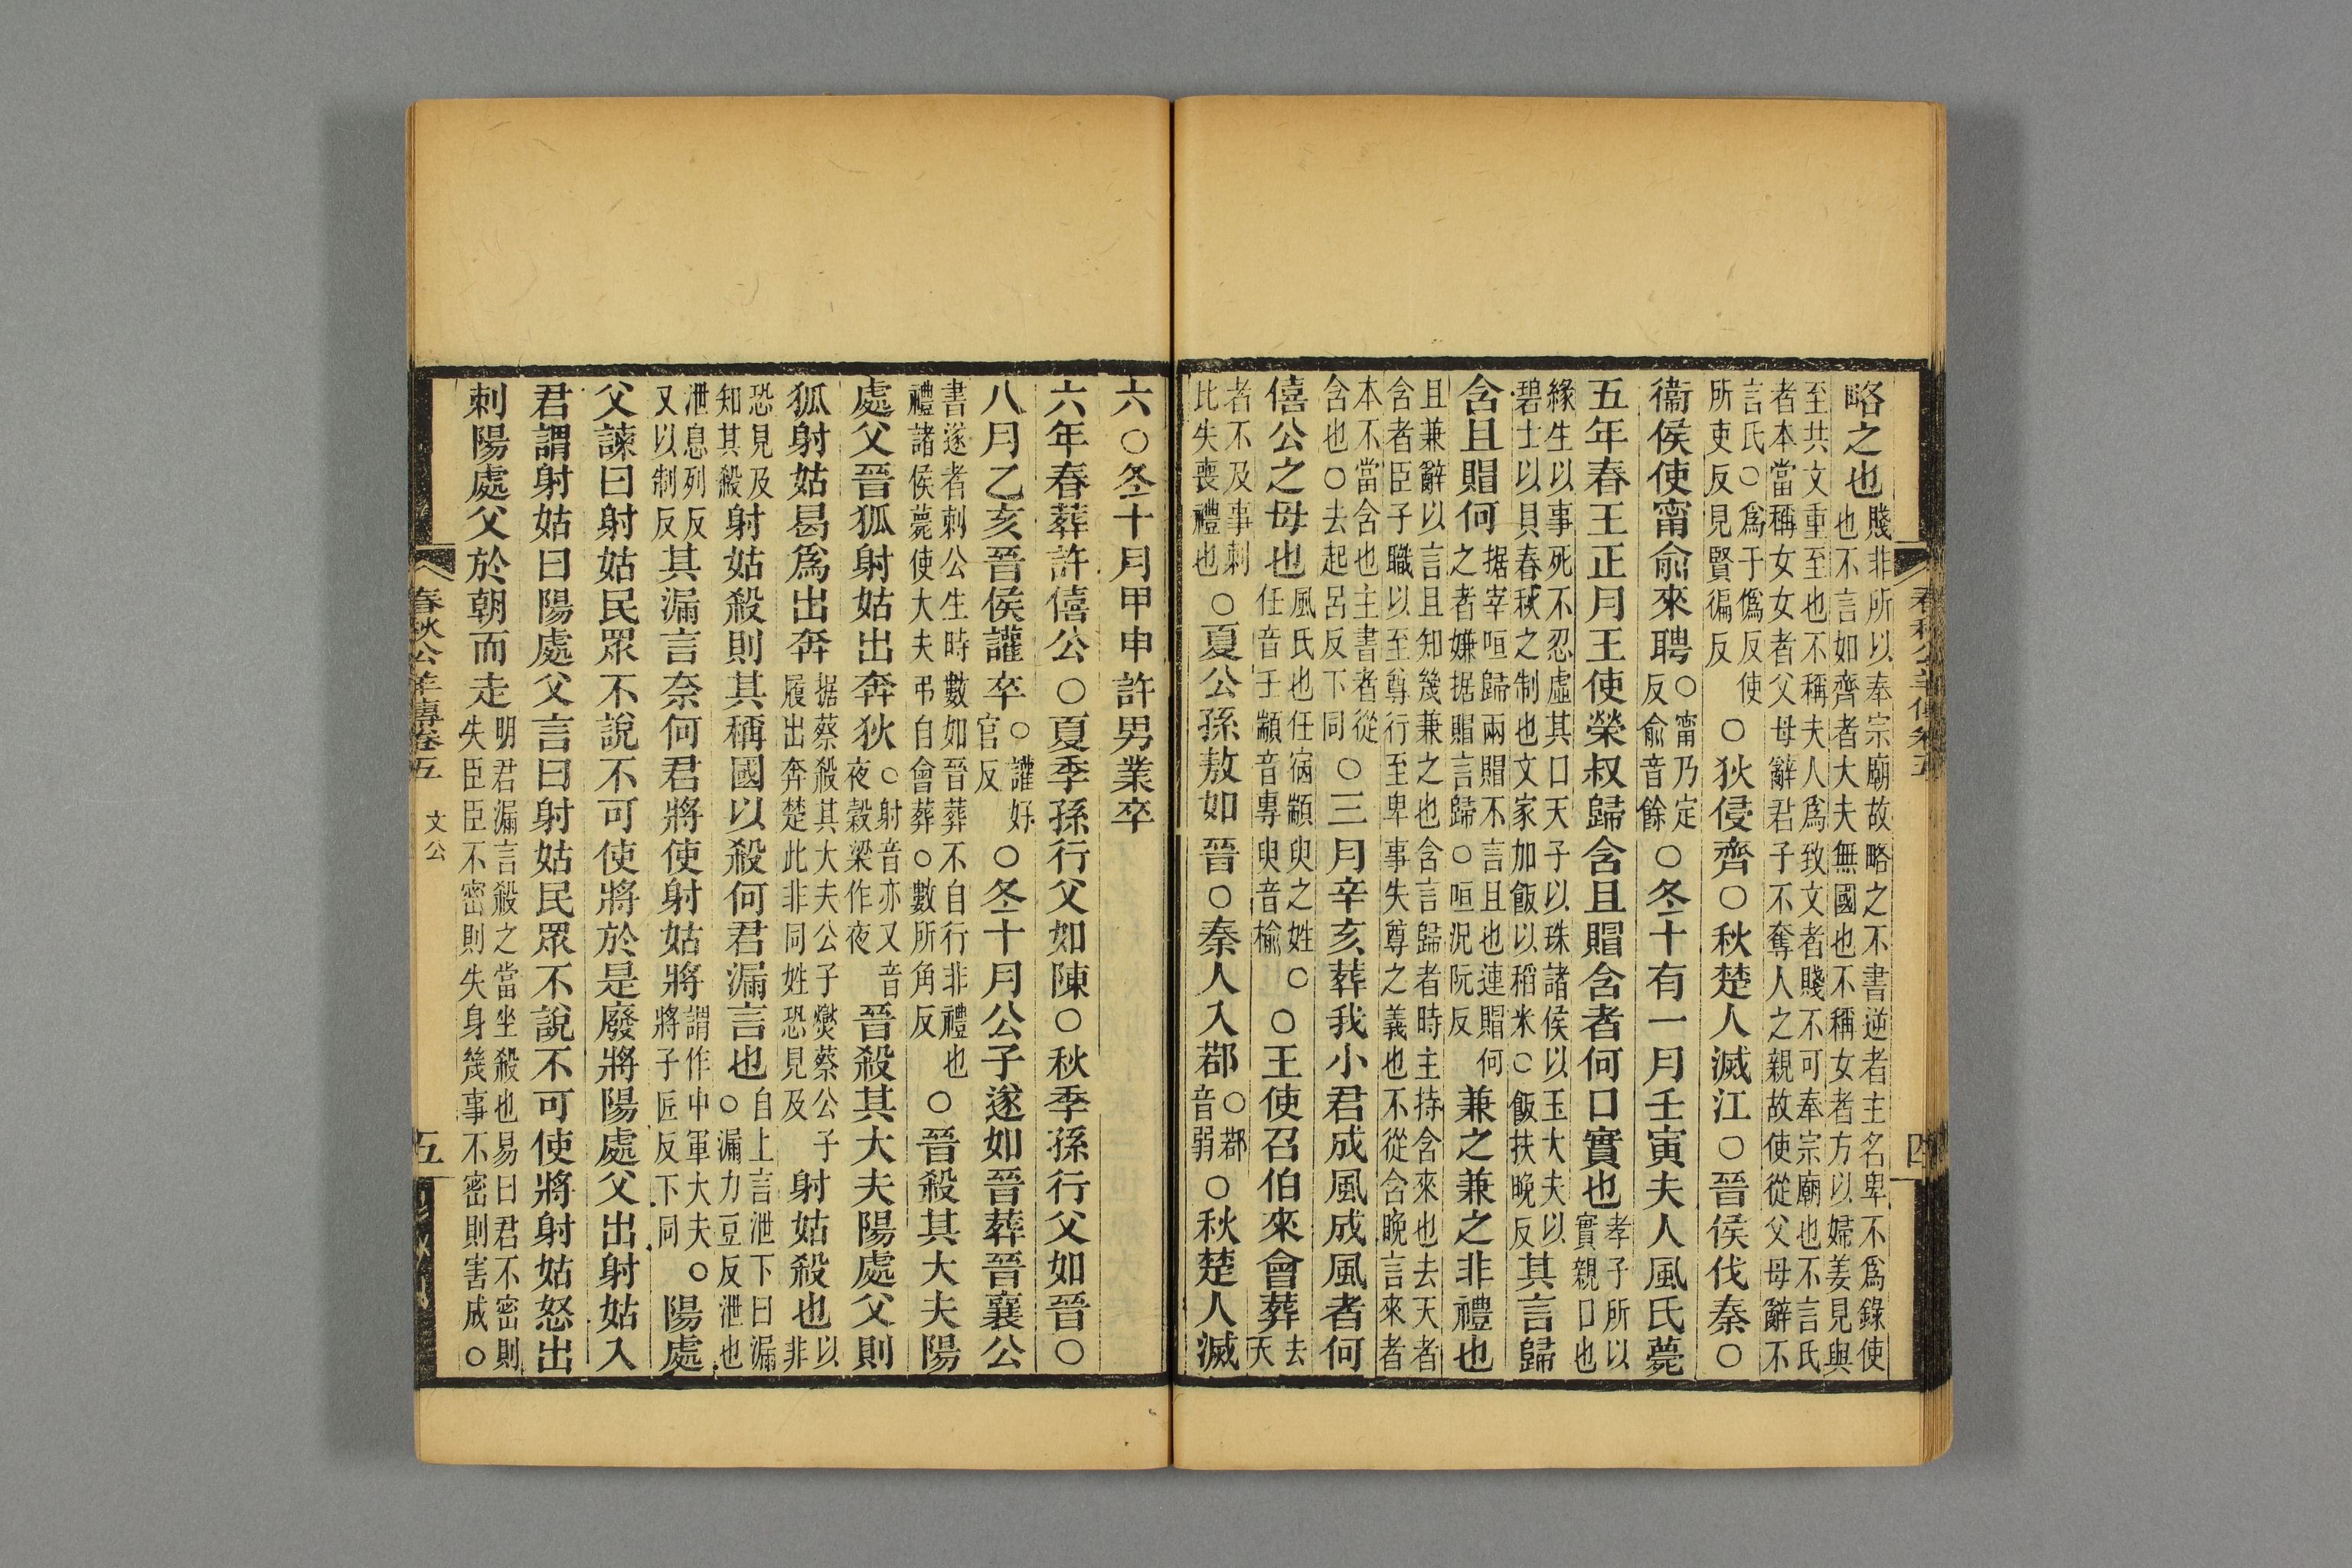 略之也賤非所以奉宗廟故略之不書逆者主名卑不爲錄使
也不言如齊者大夫無國也不稱女者方以婦姜見與
至共文重至也不稱夫人爲致文者賤不可奉宗廟也不言氏
者本當稱女女者父母辭君子不奪人之親故使從父母辭不
言氏○爲于僞反使
所吏反見賢徧反○狄侵齊○秋楚人滅江○晉侯伐秦○
衞侯使甯俞來聘○甯乃定
反俞音餘○冬十有一月壬寅夫人風氏薨
五年春王正月王使榮叔歸含且賵含者何口實也孝子所以
實親口也
緣生以事死不忍虛其口天子以珠諸侯以玉大夫以
碧士以貝春秋之制也文家加飯以稻米○飯扶晚反其言歸
含且賵何据宰咺歸兩賵不言且也連賵何
之者嫌据賵言歸○咺況阮反兼之兼之非禮也
且兼辭以言且知幾兼之也含言歸者時主持含來也去天者
含者臣子職以至尊行至卑事失尊之義也不從含晚言來者
本不當含也主書者從
含也○去起呂反下同○三月辛亥葬我小君成風成風者何
僖公之母也風氏也任宿顓臾之姓○
任音壬顓音專臾音榆○王使召伯來會葬去
天
者不及事刺
比失喪禮也○夏公孫敖如晉○秦人入鄀○鄀
音弱○秋楚人滅
六○冬十月甲申許男業卒
六年春葬許僖公○夏季孫行父如陳○秋季孫行父如晉○
八月乙亥晉侯讙卒○讙好
官反○冬十月公子遂如晉葬晉襄公
書遂者刺公生時數如晉葬不自行非禮也
禮諸侯薨使大夫弔自會葬○數所角反○晉殺其大夫陽
處父晉狐射姑出奔狄○射音亦又音
夜穀梁作夜晉殺其大夫陽處父則
狐射姑曷爲出奔据蔡殺其大夫公子燮蔡公子
履出奔楚此非同姓恐見及射姑殺也以
非
恐見及
知其殺射姑殺則其稱國以殺何君漏言也自上言泄下曰漏
○漏力豆反泄也
泄息列反
又以制反其漏言奈何君將使射姑將謂作中軍大夫
將子匠反下同○陽處
父諫曰射姑民眾不說不可使將於是廢將陽處父出射姑入
君謂射姑曰陽處父言曰射姑民眾不說不可使將射姑怒出
刺陽處父於朝而走明君漏言殺之當坐殺也易曰君不密則
失臣臣不密則失身幾事不密則害成○
春秋公羊傳卷五
文公
五